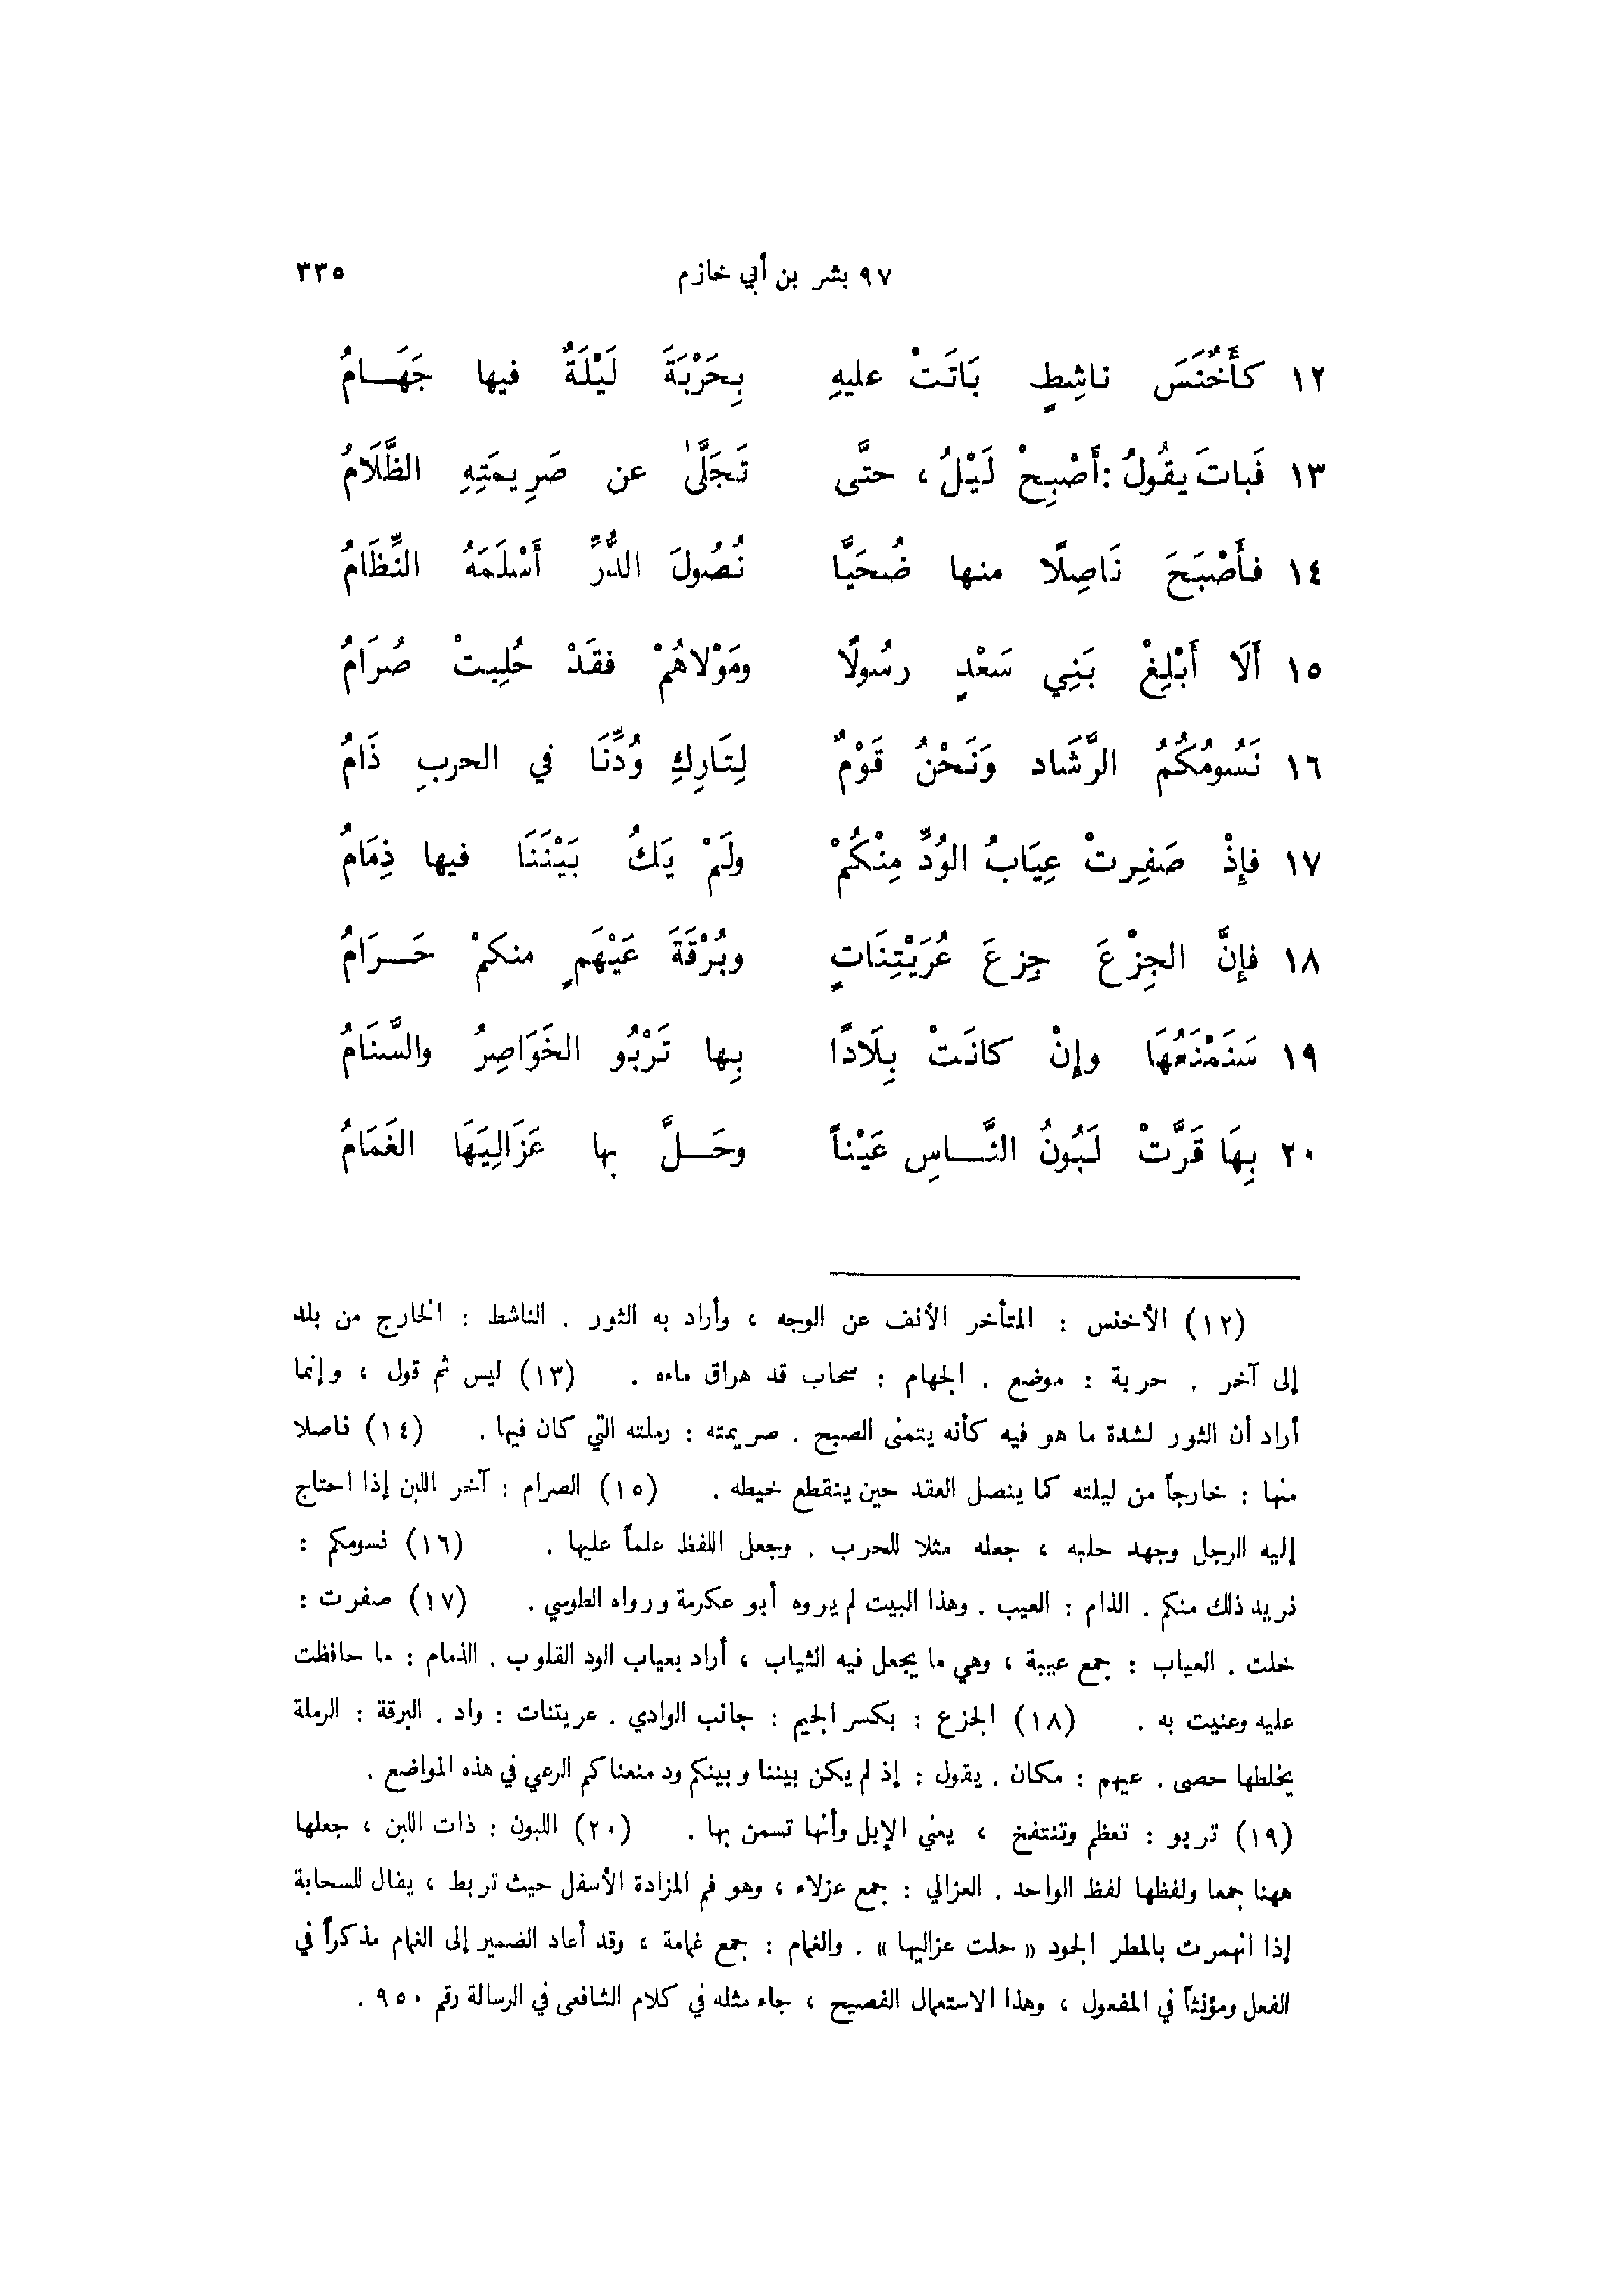 ٩٧ بشر بن أبي خازم ٣٣٥
١٢ كأَخْنَسَ ناشِطٍ بَاتَتْ عليهِ بِحَرْبَةَ لَيْلَةٌ فيها جَهَـامُ
١٣ فَباتَ يقُولُ : أَصْبِحْ لَيْلُ ، حتَّى تَجَلَّىٰ عن صَرِيمَتِهِ الظَّلَامُ
١٤ فأَصْبَحَ نَاصِلًا منها ضُحَيًّا نُصُولَ الدُّرِّ أَسْلَمَهُ النِّظَامُ
١٥ أَلَا أَبْلِغْ بَنِي سَعْدٍ رسُولًا ومَوْلاهُمْ فقَدْ حُلِبتْ صُرَامُ
١٦ نَسُومُكُمُ الرَّشَاد وَنَحْنُ قَوْمٌ لِتَارِكِ وُدِّنَا في الحربِ ذَامُ
١٧ فإِذْ صَفِرتْ عِيَابُ الوُدِّ مِنْكُمْ ولَمْ يَكُ بَيْنَنَا فيها ذِمَامُ
١٨ فإِنَّ الجِزْعَ جِزعَ عُرَيْتِنَاتٍ وبُرْقَةَ عَيْهَمٍ منكمْ حَـرَامُ
١٩ سَنَمْنَعُهَا وإِنْ كانَتْ بِلَادًا بِها تَرْبُو الخَوَاصِرُ والسَّنَامُ
٢٠ بِهَا قَرَّتْ لَبُونُ النَّـاسِ عَيْناً وحَـلَّ بها عَزَالِيَهَا الغَمَامُ
(١٢) الأخنس : المتأخر الأنف عن الوجه ، وأراد به الثور . الناشط : الخارج من بلد
إلى آخر . حربة : موضع . الجهام : سحاب قد هراق ماءه . (١٣) ليس ثم قول ، وإنما
أراد أن الثور لشدة ما هو فيه كأنه يتمنى الصبح . صريمته : رملته التي كان فيها . (١٤) ناصلا
منها : خارجاً من ليلته كما ينصل العقد حين ينقطع خيطه . (١٥) الصرام : آخر اللبن إذا احتاج
إليه الرجل وجهد حلبه ، جعله مثلا للحرب . وجعل اللفظ علماً عليها . (١٦) نسومكم :
نريد ذلك منكم . الذام : العيب . وهذا البيت لم يروه أبو عكرمة ورواه الطوسي . (١٧) صفرت :
خلت . العياب : جمع عيبة ، وهي ما يجعل فيه الثياب ، أراد بعياب الود القلوب . الذمام : ما حافظت
عليه وعنيت به . (١٨) الجزع : بكسر الجيم : جانب الوادي . عريتنات : واد . البرقة : الرملة
يخلطها حصى . عيهم : مكان . يقول : إذ لم يكن بيننا وبينكم ود منعناكم الرعي في هذه المواضع .
(١٩) تربو : تعظم وتنتفخ ، يعني الإبل وأنها تسمن بها . (٢٠) اللبون : ذات اللبن ، جعلها
ههنا جمعا ولفظها لفظ الواحد . العزالي : جمع عزلاء ، وهو فم المزادة الأسفل حيث تربط ، يقال للسحابة
إذا انهمرت بالمطر الجود « حلت عزاليها » . والغمام : جمع غمامة ، وقد أعاد الضمير إلى الغمام مذكراً في
الفعل ومؤنثاً في المفعول ، وهذا الاستعمال الفصيح ، جاء مثله في كلام الشافعى في الرسالة رقم ٩٥٠ .